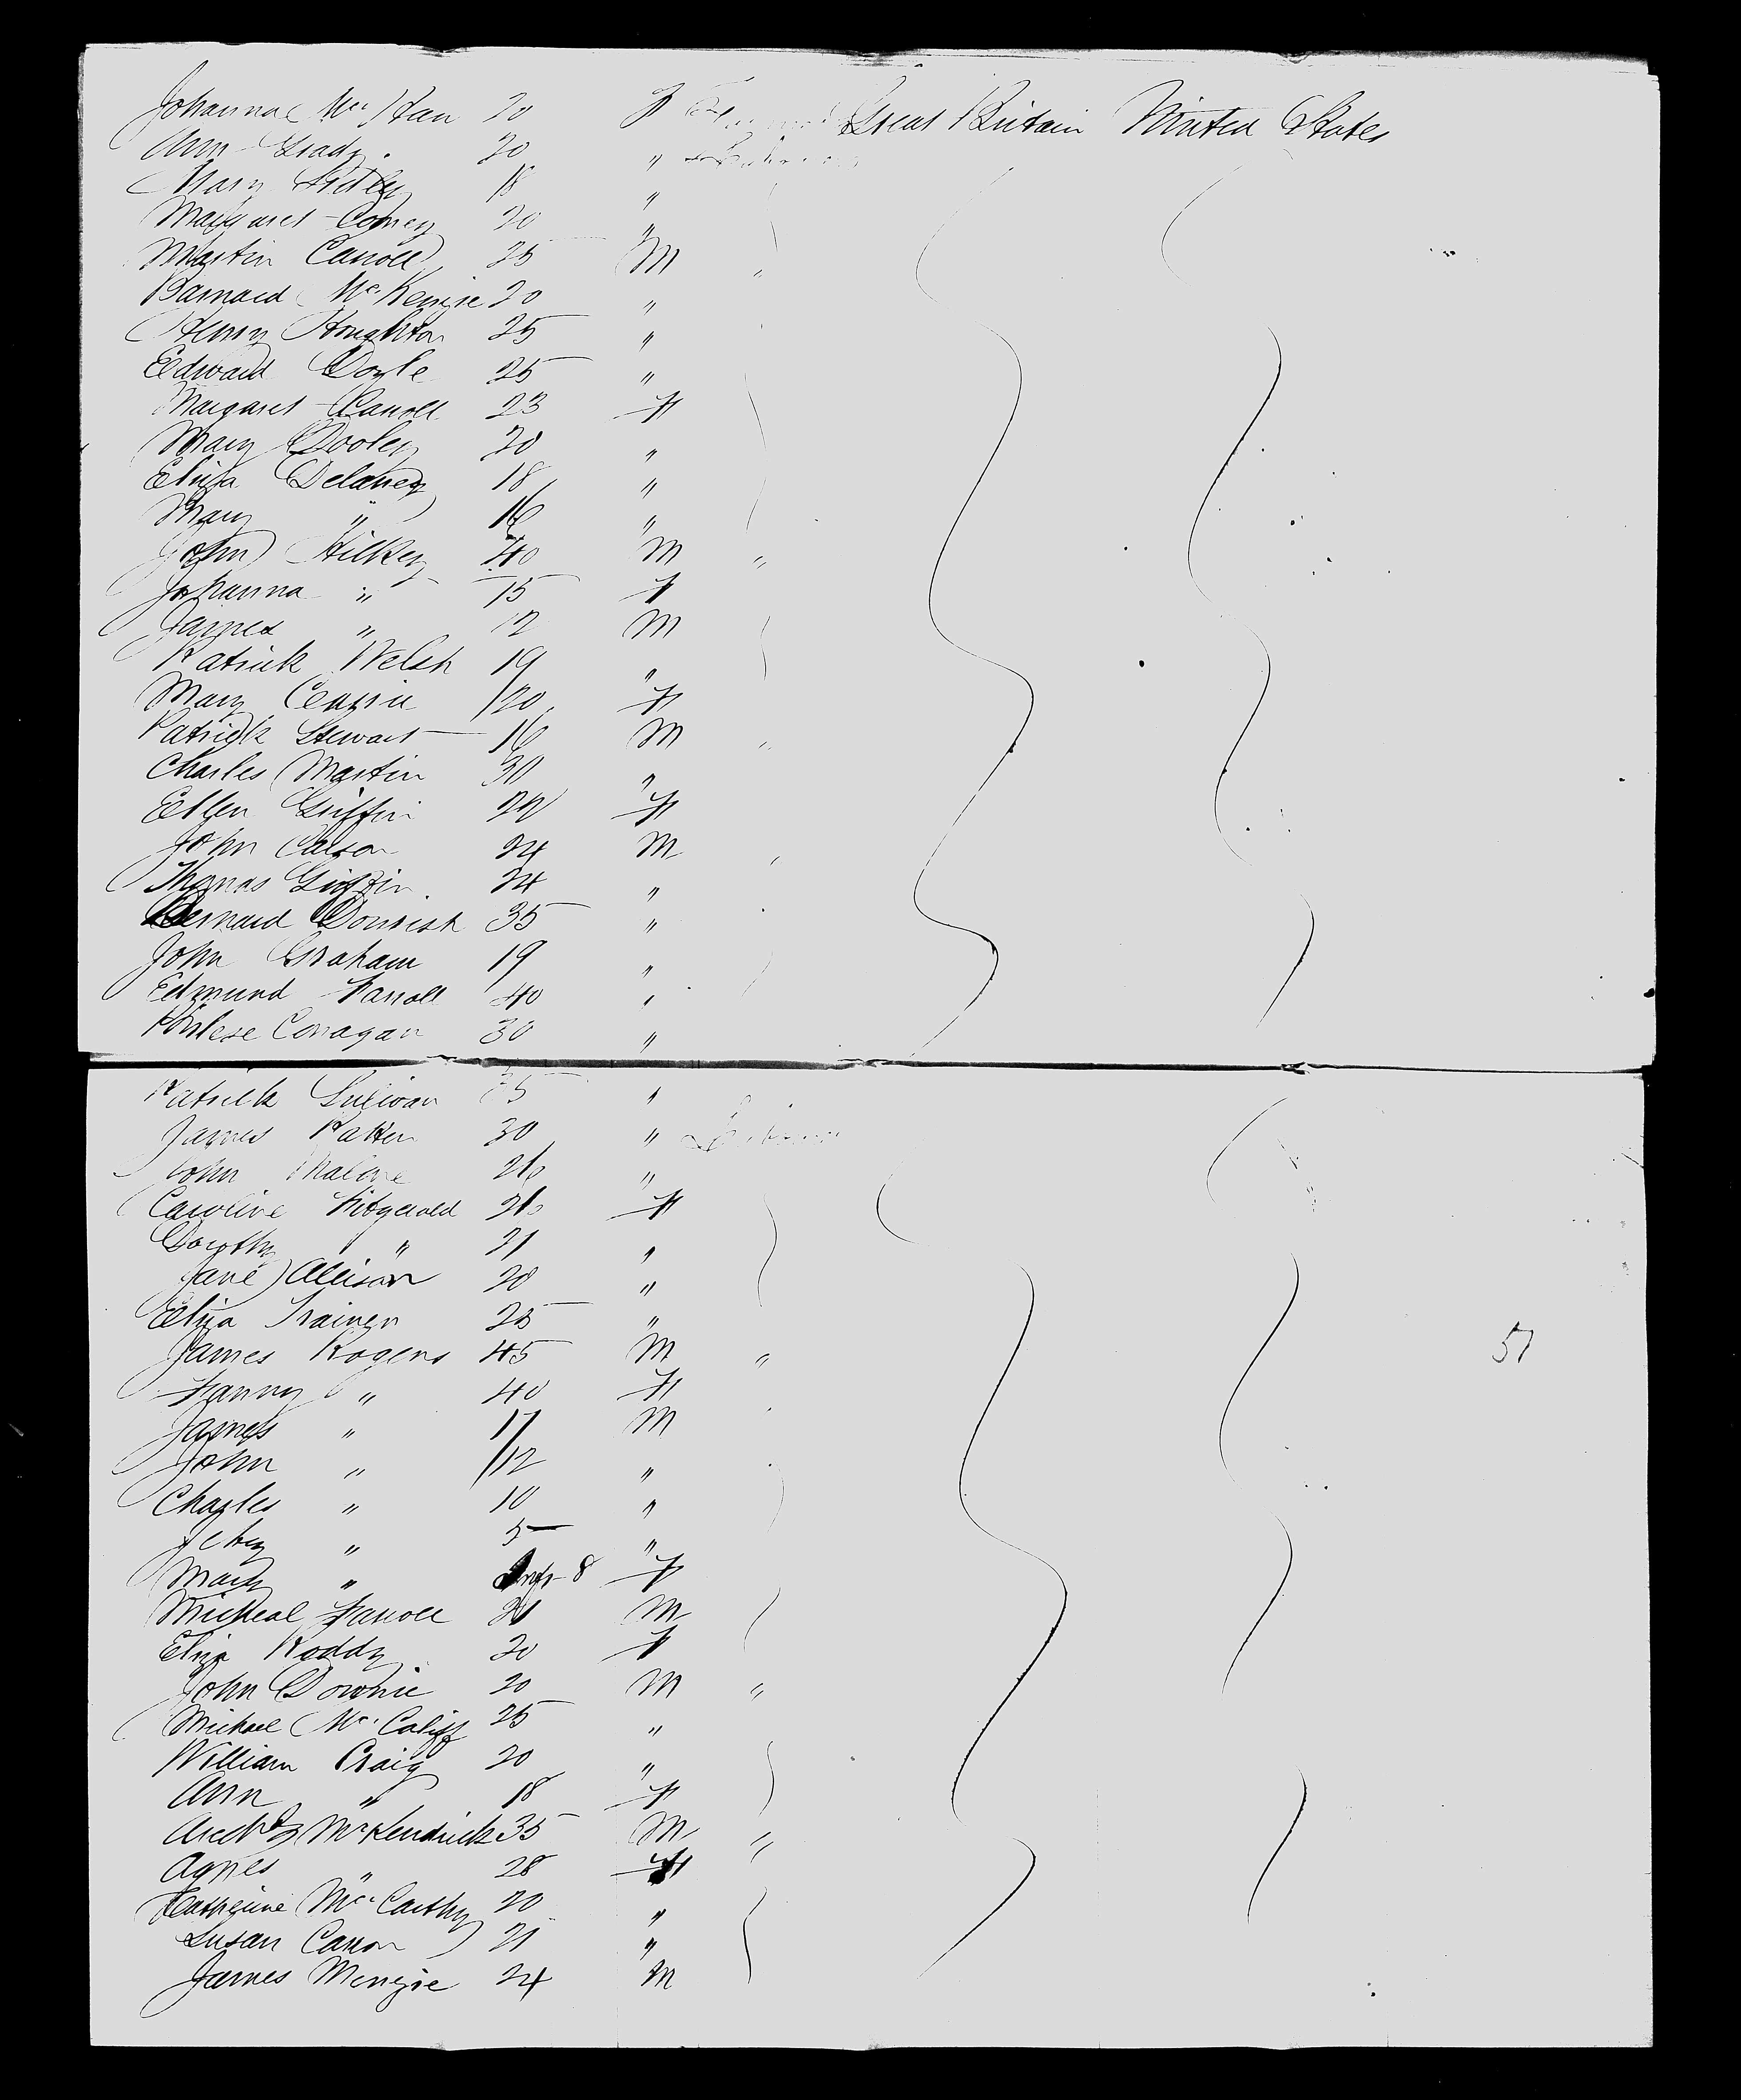 Johanna Mc Han 20 F Great Britain United States
Ann Grady 20 "
Mary 18 "
Margaret Comey 20 "
Martin Carroll 25 M "
Barnard McKenzie 20 "
Henry Houghton 25 "
Edward Doyle 25 "
Margaret Carroll 23 F
Mary Dooley 20 "
Eliza Delaney 18 "
Mary " 16 "
John Hilkey 40 M "
Johanna " 15 F
James " 12 M
Patrick Welsh 19 "
Mary 20 F
Patrick Stewart 16 M "
Charles Martin 30 "
Ellen Griffin 22 F
John Carson 24 M "
Thomas Griffin 24 "
Bernard Dourish 35 "
John Graham 19 "
Edmund Farroll 40 "
Conagan 30 "
Patrick Sullivan 35 "
James Patten 30 "
John Malone 26 "
Caroline Fitzgerald 26 F
Dorothy " 21 "
Jane Allison 20 "
Eliza Trainer 25 "
James Rogers 45 M "
Fanny " 40 F
James " 17 M
John " 12 "
Charles " 10 "
" 5 "
Mary " Inft 8 F
Micheal Farroll 21 M
Eliza Roddy 20 F
John Downie 20 M "
Michael Mc Califf 25 "
William Craig 20 "
Ann " 18 F
Archd McKendrick 35 M "
Agnes " 28 F
Catherine McCarthy 20 "
Susan Cannon 21 "
James Menzie 24 M
51